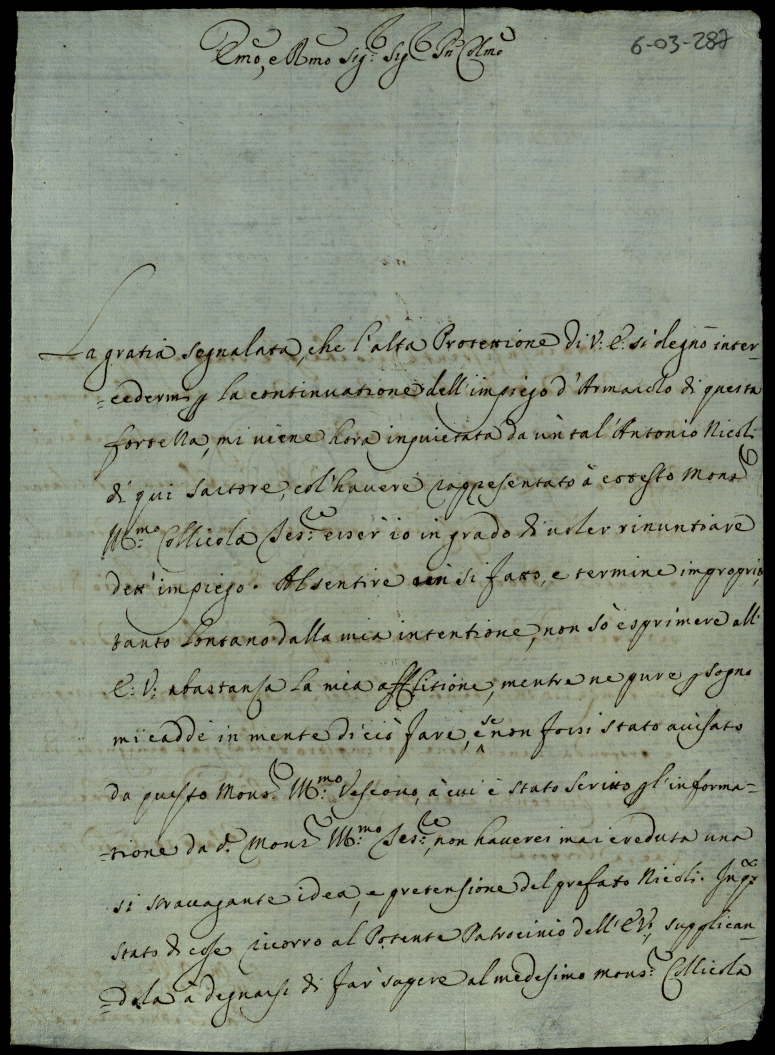 6-03-287
Emo, e Rmo Sig.r Sig.r Pn Colmo
La gratia segnalata, che l'alta Protettione di V: E: si degnò inter-
=cedermi p la continuatione dell'impiego d'Armaiolo di questa
fortezza, mi viene hora inquietata da un tal'Antonio Nicoli
di qui sartore, col'havere rappresentato à cotesto Monsr
Illmo Collicola Tesre esser io in grado di voler rinuntiare
dett'impiego. Al sentire un si fatto, e termine improprio,
tanto lontano dalla mia intentione, non sò esprimere all'
E: V: abastanza la mia afflitione, mentre ne pure p sogno
mi cadde in mente di ciò fare, e se non fossi stato avisato
da questo Monsr Illmo Vescovo, à cui è stato scritto p l'informa=
=tione da d.o Monsr Illmo Tesre, non haverei mai creduta una
si stravagante idea, e pretensione del prefato Nicoli. In
stato di cose ricorro al Potente Patrocinio dell'E V:, supplican=
=dola à degnarsi di far sapere al medesimo Monsr Collicola